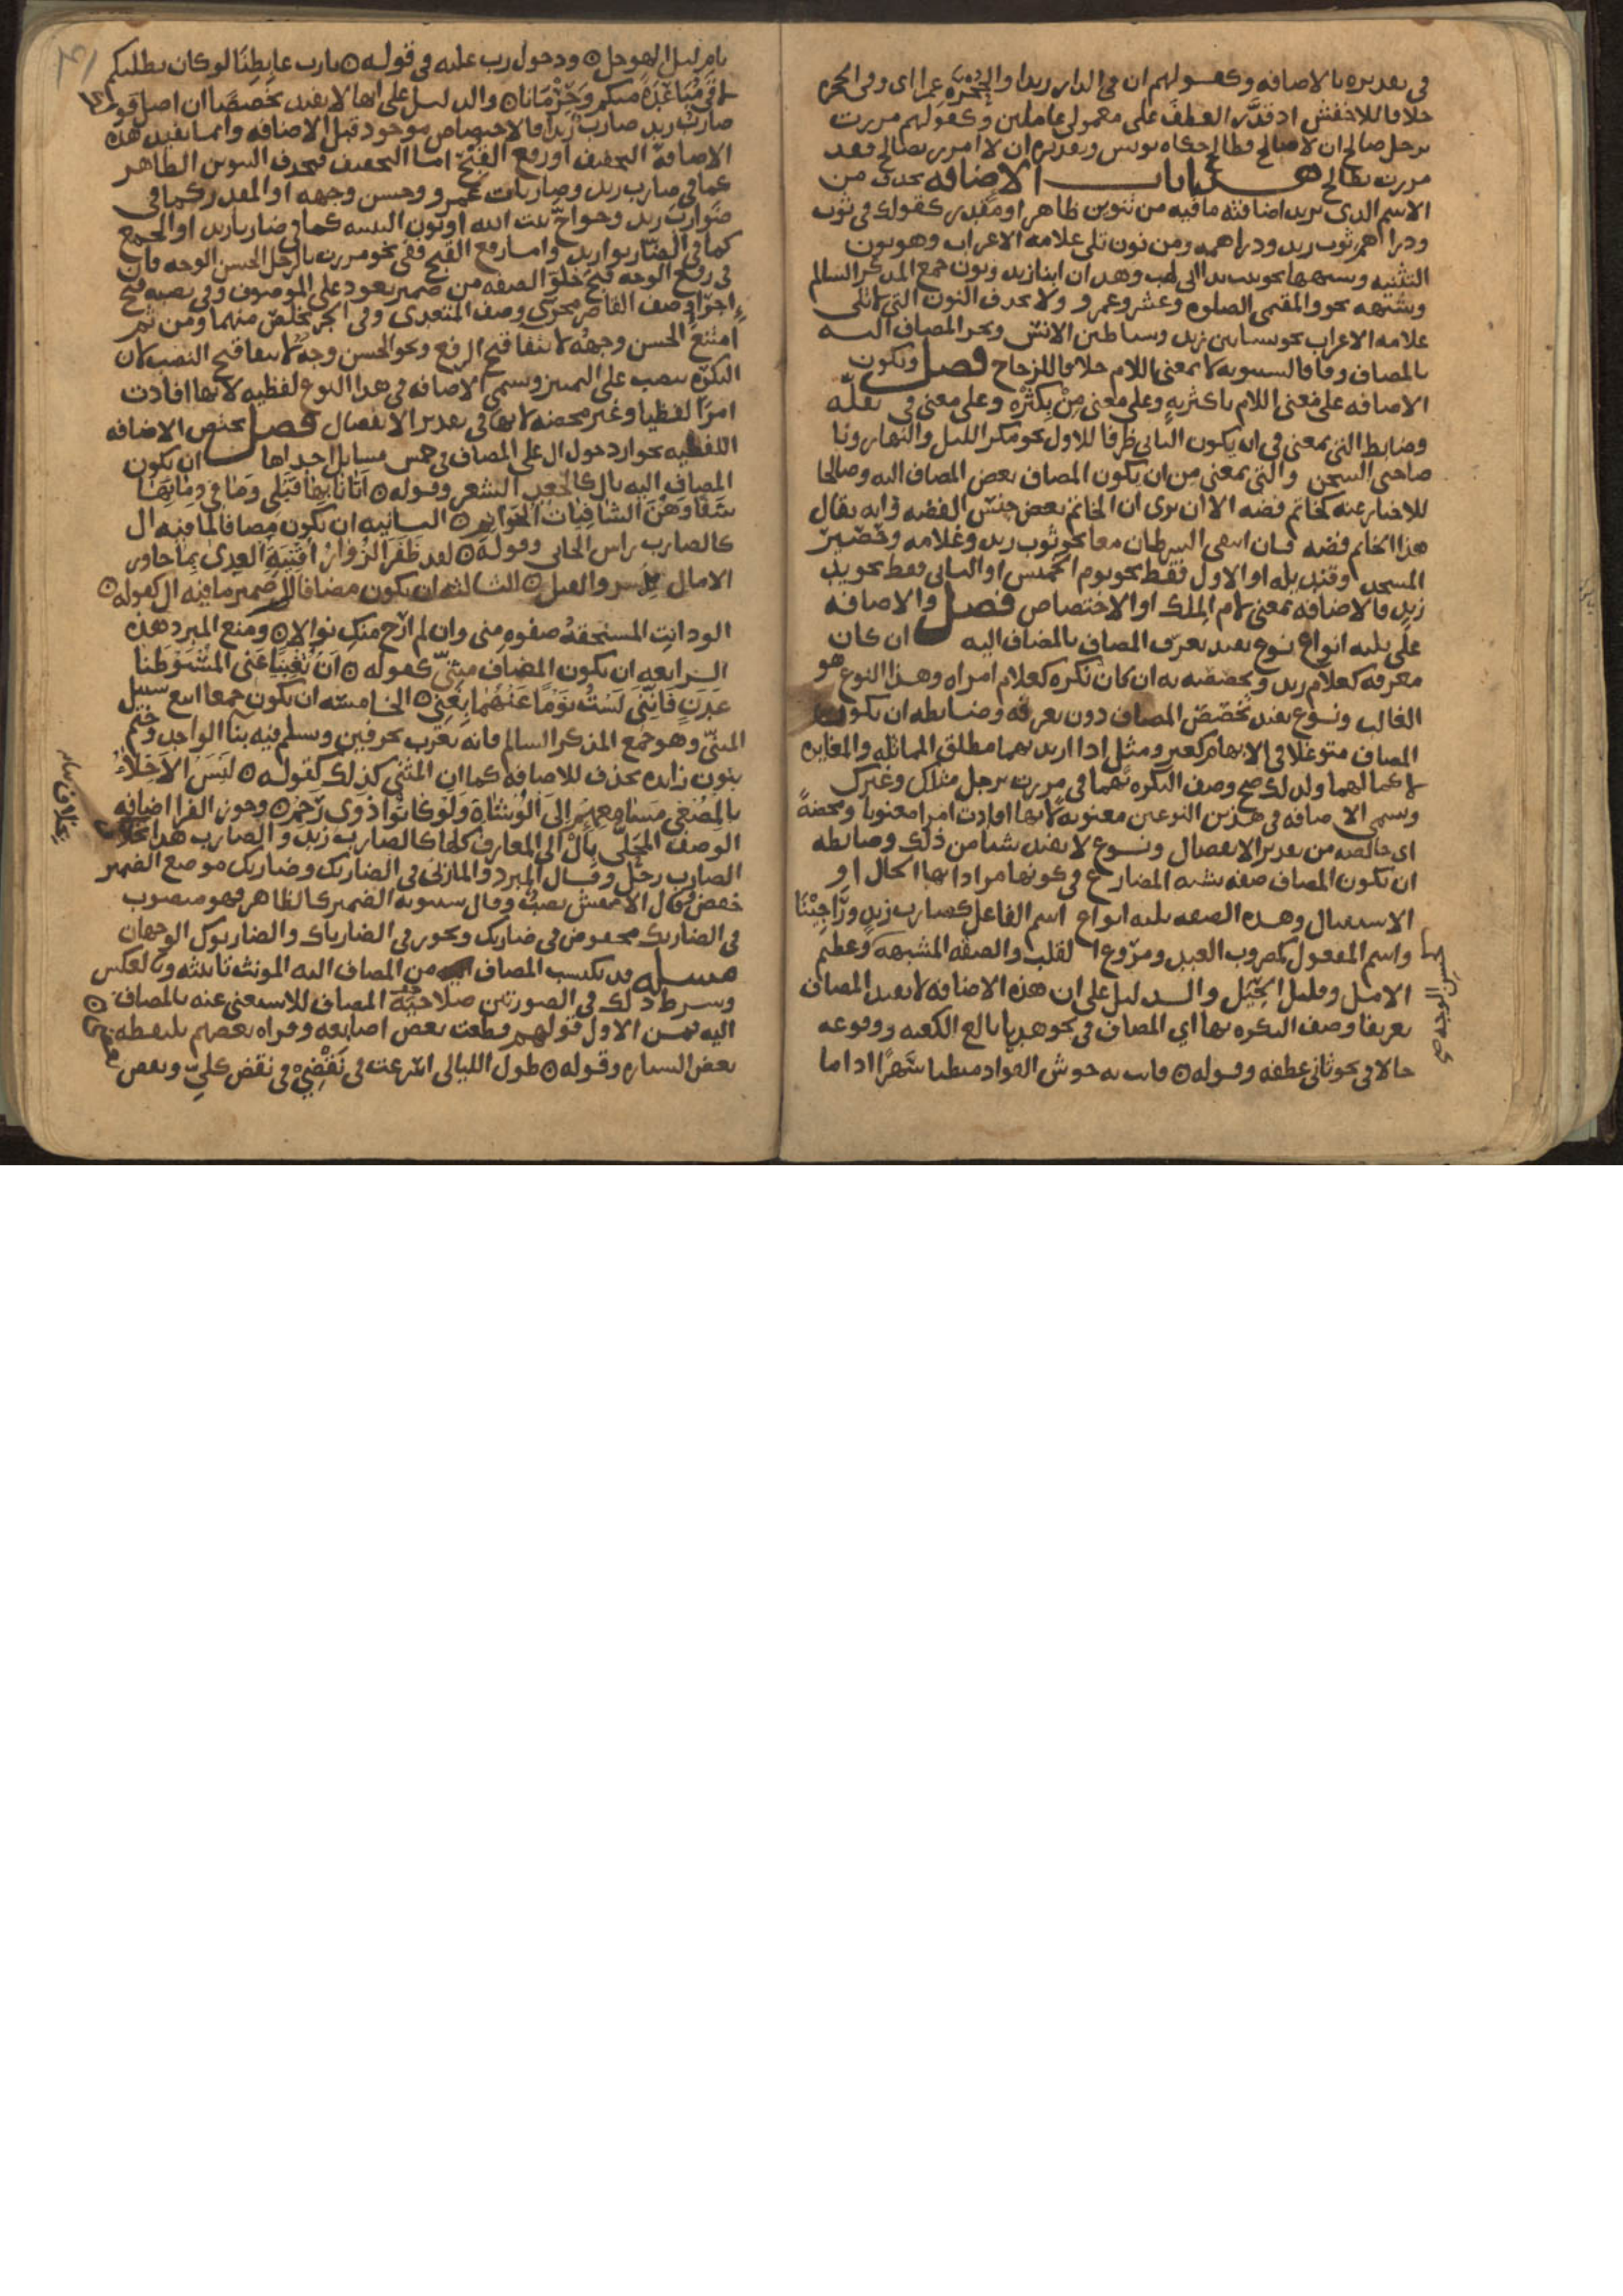 في تقديره بالاضافه وكقولهم ان في الدار زيدا والحجره عمرا اي وفي الحجره
خلافا للاخفش اذ قدّر العطف على معمولي عاملين وكقولهم مررت
برجل صالح ان لا صالح فطالح حكاه يونس وتقديره ان لا امرر بصالح فقد
مررت بطالح هذا باب الاضافه تحذف من
الاسم الذي تريد اضافته ما فيه من تنوين ظاهر او مقدر كقولك في ثوب
ودراهم ثوب زيد ودراهمه ومن نون تلي علامه الاعراب وهو نون
التثنيه وشبهها نحو تبت يدا ابي لهب وهذان اثنا زيد ونون جمع المذكر السالم
وشبهه نحو والمقيمي الصلوه وعشرو عمرو ولا تحذف النون التي تلي
علامه الاعراب نحو بساتين زيد وشياطين الانس ويجر المضاف اليه
بالمضاف وفاقا لسيبويه لا بمعنى اللام خلافا للزجاج فصل وتكون
الاضافه على معنى اللام باكثريه وعلى معنى من بكثره وعلى معنى في بقله
وضابط التي بمعنى في ان يكون الثاني ظرفا للاول نحو مكر الليل والنهار ويا
صاحبي السجن والتي بمعنى من ان يكون المضاف بعض المضاف اليه وصالحا
للاخبار عنه كخاتم فضه الا ان ترى ان الخاتم بعض جنس الفضه وانه يقال
هذا الخاتم فضه فان انتفى الشرطان معا نحو ثوب زيد وغلامه وحصير
المسجد وقنديله او الاول فقط نحو يوم الخميس او الثاني فقط نحو يد
زيد فالاضافه بمعنى لام الملك او الاختصاص فصل والاضافه
على ثلثه انواع نوع يفيد تعرف المضاف بالمضاف اليه ان كان
معرفه كغلام زيد وتخصصه به ان كان نكره كغلام امراه وهذا النوع هو
الغالب ونوع يفيد تخصص المضاف دون تعرفه وضابطه ان يكون
المضاف متوغلا في الابهام كغير ومثل اذا اريد بهما مطلق المماثله والمغايره
لا كمالهما ولذلك صح وصف النكره بهما في مررت برجل مثلك وغيرك
وتسمى الاضافه في هذين النوعين معنويه لانها افادت امرا معنويا ومحضةً
اي خالصه من تقدير الانفصال ونوع لا يفيد شيا من ذلك وضابطه
ان يكون المضاف صفه تشبه المضارع في كونها مرادا بها الحال او
الاستقبال وهذه الصفه ثلثه انواع اسم الفاعل كضارب زيد وراجينا
واسم المفعول كمضروب العبد ومروع القلب والصفه المشبهه كعظيم
الامل وقليل الحيل والدليل على ان هذه الاضافه لا تفيد المضاف
تعريفا وصف النكره بها اي المضاف في نحو هديا بالغ الكعبه ووقوعه
حالا في نحو ثاني عطفه وقوله فاتت به حوش الفؤاد مبطنا سهدا اذا ما
نام ليل الهوجل ودخول رب عليه في قوله يا رب غابطنا لو كان يطلبكم
لاقى مباعده منكم وحرمانا والدليل على انها لا تفيد تخصصا ان اصل قولك
ضارب زيد ضارب زيدا فالاختصاص موجود قبل الاضافه وانما تفيد هذه
الاضافه التخفيف او رفع القبح اما التخفيف فبحذف التنوين الظاهر
كما في ضارب زيد وضاربات عمرو وحسن وجهه او المقدر كما في
ضوارب زيد وحواج بيت الله او نون التثنيه كما في ضاربا زيد او الجمع
كما في الضاربوا زيد واما رفع القبح ففي نحو مررت بالرجل الحسن الوجه فان
في رفع الوجه قبح خلو الصفه من ضمير يعود على الموصوف وفي نصبه قبح
اجراء وصف القاصر مجرى وصف المتعدي وفي الجر تخلص منهما ومن ثم
امتنع الحسن وجهه لانتفا قبح الرفع ونحو الحسن وجه لانتفا قبح النصب لان
النكره تنصب على التمييز وتسمى الاضافه في هذا النوع لفظيه لانها افادت
امرا لفظيا وغير محضه لانها في تقدير الانفصال فصل تختص الاضافه
اللفظيه بجواز دخول ال على المضاف في خمس مسايل احداها ان يكون
المضاف اليه بال كالجعد الشعر وقوله اباءنا بها قتلى وما في دمائها
شفا وهن الشافيات الحوائم الثانيه ان يكون مضافا لما فيه ال
كالضارب راس الجاني وقوله لقد ظفر الزوار اقفيه العدى بما جاوز
الامال ملاسر والقتل الثالثه ان يكون مضافا الى ضمير ما فيه ال كقوله
الود انت المستحقه صفوه مني وان لم ارج منك نوالا ومنع المبرد هذه
الرابعه ان يكون المضاف مثنى كقوله ان يغنيا عني المستوطنا
عدن فانني لست يوما عنهما بغني الخامسه ان يكون جمعا اتبع سبيل
المثنى وهو جمع المذكر السالم فانه يعرب بحرفين ويسلم فيه بنا الواحد وختم
بنون زايده تحذف للاضافه كما ان المثنى كذلك كقوله ليس الاخلاء
بالمصغي مسامعهم الى الوشاة ولو كانوا ذوي رحم وجوز الفرا اضافه
الوصف المحلى بال الى المعارف كلها كالضارب زيد والضارب هذا بخلاف
الضارب رجل وقال المبرد والمازني في الضاربك وضاربك موضع الضمير
خفض وقال الاخفش نصب وقال سيبويه الضمير كالظاهر فهو منصوب
في الضاربك مخفوض في ضاربك ويجوز في الضارباك والضاربوك الوجهان
مسئله قد يكتسب المضاف من المضاف اليه المونث تانيثه وبالعكس
وشرط ذلك في الصورتين صلاحيه المضاف للاستغنا عنه بالمضاف
اليه فمن الاول قولهم قطعت بعض اصابعه وقراه بعضهم تلتقطه
بعض السياره وقوله طول الليالي اسرعت في نقضي نقضن كلي ونقضن